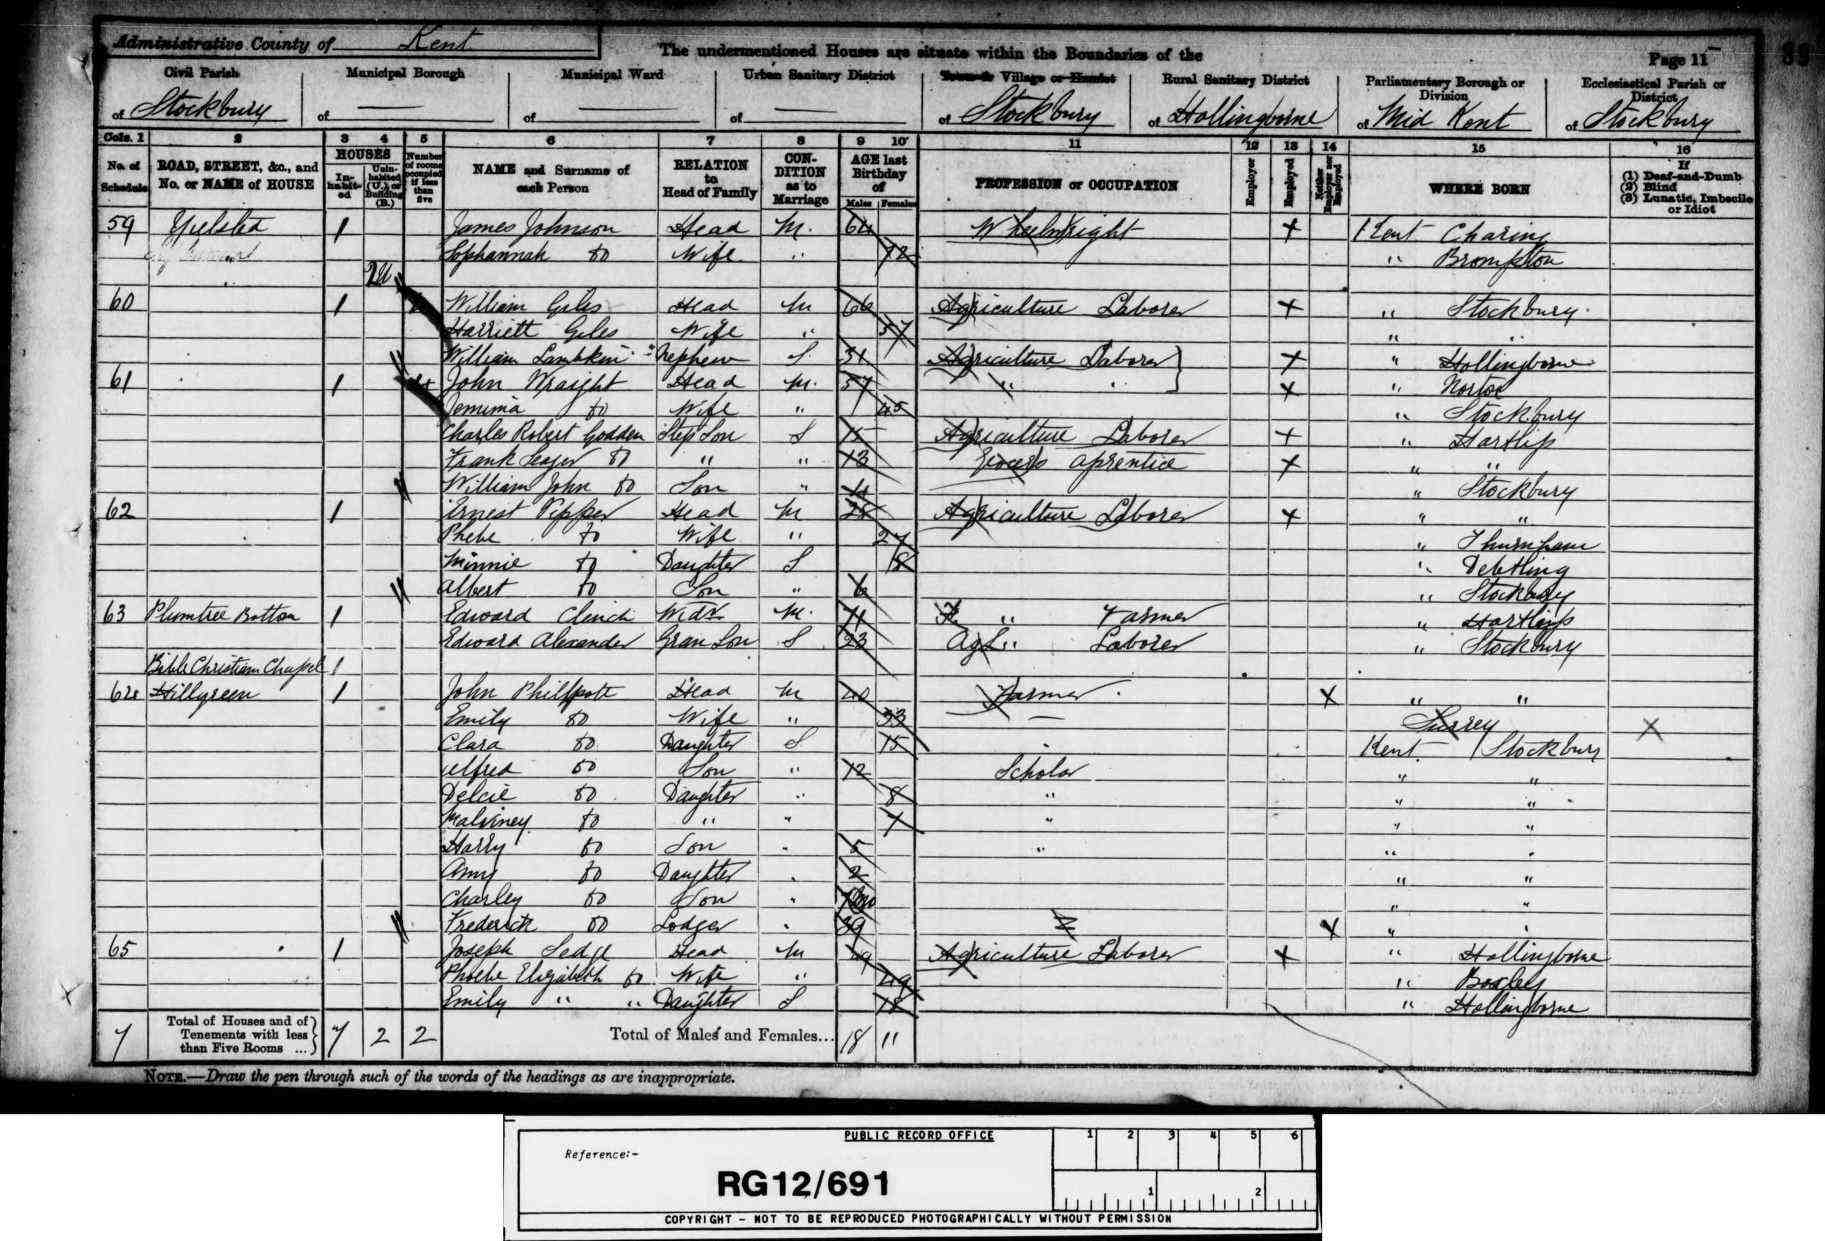 Administrative County of Kent
The undermentioned Houses are situate within the Boundaries of the
Page 11
Civil Parish of Stockbury
Municipal Borough of —
Municipal Ward of —
Urban Sanitary District of —
Town or Village or Hamlet of Stockbury
Rural Sanitary District of Hollingborne
Parliamentary Borough or Division of Mid Kent
Ecclesiastical Parish or District of Stockbury
Cols. 1 2 3 4 5 6 7 8 9 10 11 12 13 14 15 16
No. of Schedule
ROAD, STREET, &c., and No. or NAME of HOUSE
HOUSES
Inhabited
Uninhabited (U.) or Building (B.)
Number of rooms occupied if less than five
NAME and Surname of each Person
RELATION to Head of Family
CONDITION as to Marriage
AGE last Birthday of
Males Females
PROFESSION or OCCUPATION
Employer
Employed
Neither Employer nor Employed
WHERE BORN
If (1) Deaf-and-Dumb (2) Blind (3) Lunatic, Imbecile or Idiot
59 Yelsted 1 James Johnson Head M. 64 Wheelwright X Kent Charing
Sophannah do Wife " 72 " Brompton
2U
60 1 William Giles Head M 66 Agriculture Laborer X " Stockbury
Harriett Giles Wife " 57 " "
William Lambkin Nephew S. 31 Agriculture Laborer X " Hollingborne
61 1 John Wraight Head M. 57 " " X " Norton
Jemima do Wife " 45 " Stockbury
Charles Robert Godden Step Son S 15 Agriculture Laborer X " Hartlip
Frank Seager do " " 13 Grocers Aprentice X " "
William John do Son " 4 " Stockbury
62 1 Ernest Pepper Head M 28 Agriculture Laborer X " "
Phebe do Wife " 27 " Thurnham
Minnie do Daughter S 8 " Debtling
Albert do Son " 6 " Stockbury
63 Plumtree Bottom 1 Edward Clinch Widr M. 71 " Farmer " Hartlip
Edward Alexander Gran Son S 23 Ag L " Laborer " Stockbury
Bible Christian Chapel 1
64 Hillgreen 1 John Phillpott Head M 40 Farmer X " "
Emily do Wife " 33 — Surrey X
Clara do Daughter S 15 Kent Stockbury
Alfred do Son " 12 Scholar " "
Delcie do Daughter " 8 " " "
Malviney do " " 7 " " "
Harry do Son " 5 " " "
Amy do Daughter " 2 " "
Charley do Son " " "
Frederick do Lodger " 39 X " "
65 1 Joseph Sedge Head M 49 Agriculture Laborer X " Hollingborne
Phoebe Elizabeth do Wife " 49 " Boxley
Emily " " Daughter S 18 " Hollingborne
7 Total of Houses and of Tenements with less than Five Rooms ... 7 2 2 Total of Males and Females... 18 11
NOTE.—Draw the pen through such of the words of the headings as are inappropriate.
PUBLIC RECORD OFFICE
Reference:-
RG12/691
1 2 3 4 5 6
1 2
COPYRIGHT - NOT TO BE REPRODUCED PHOTOGRAPHICALLY WITHOUT PERMISSION